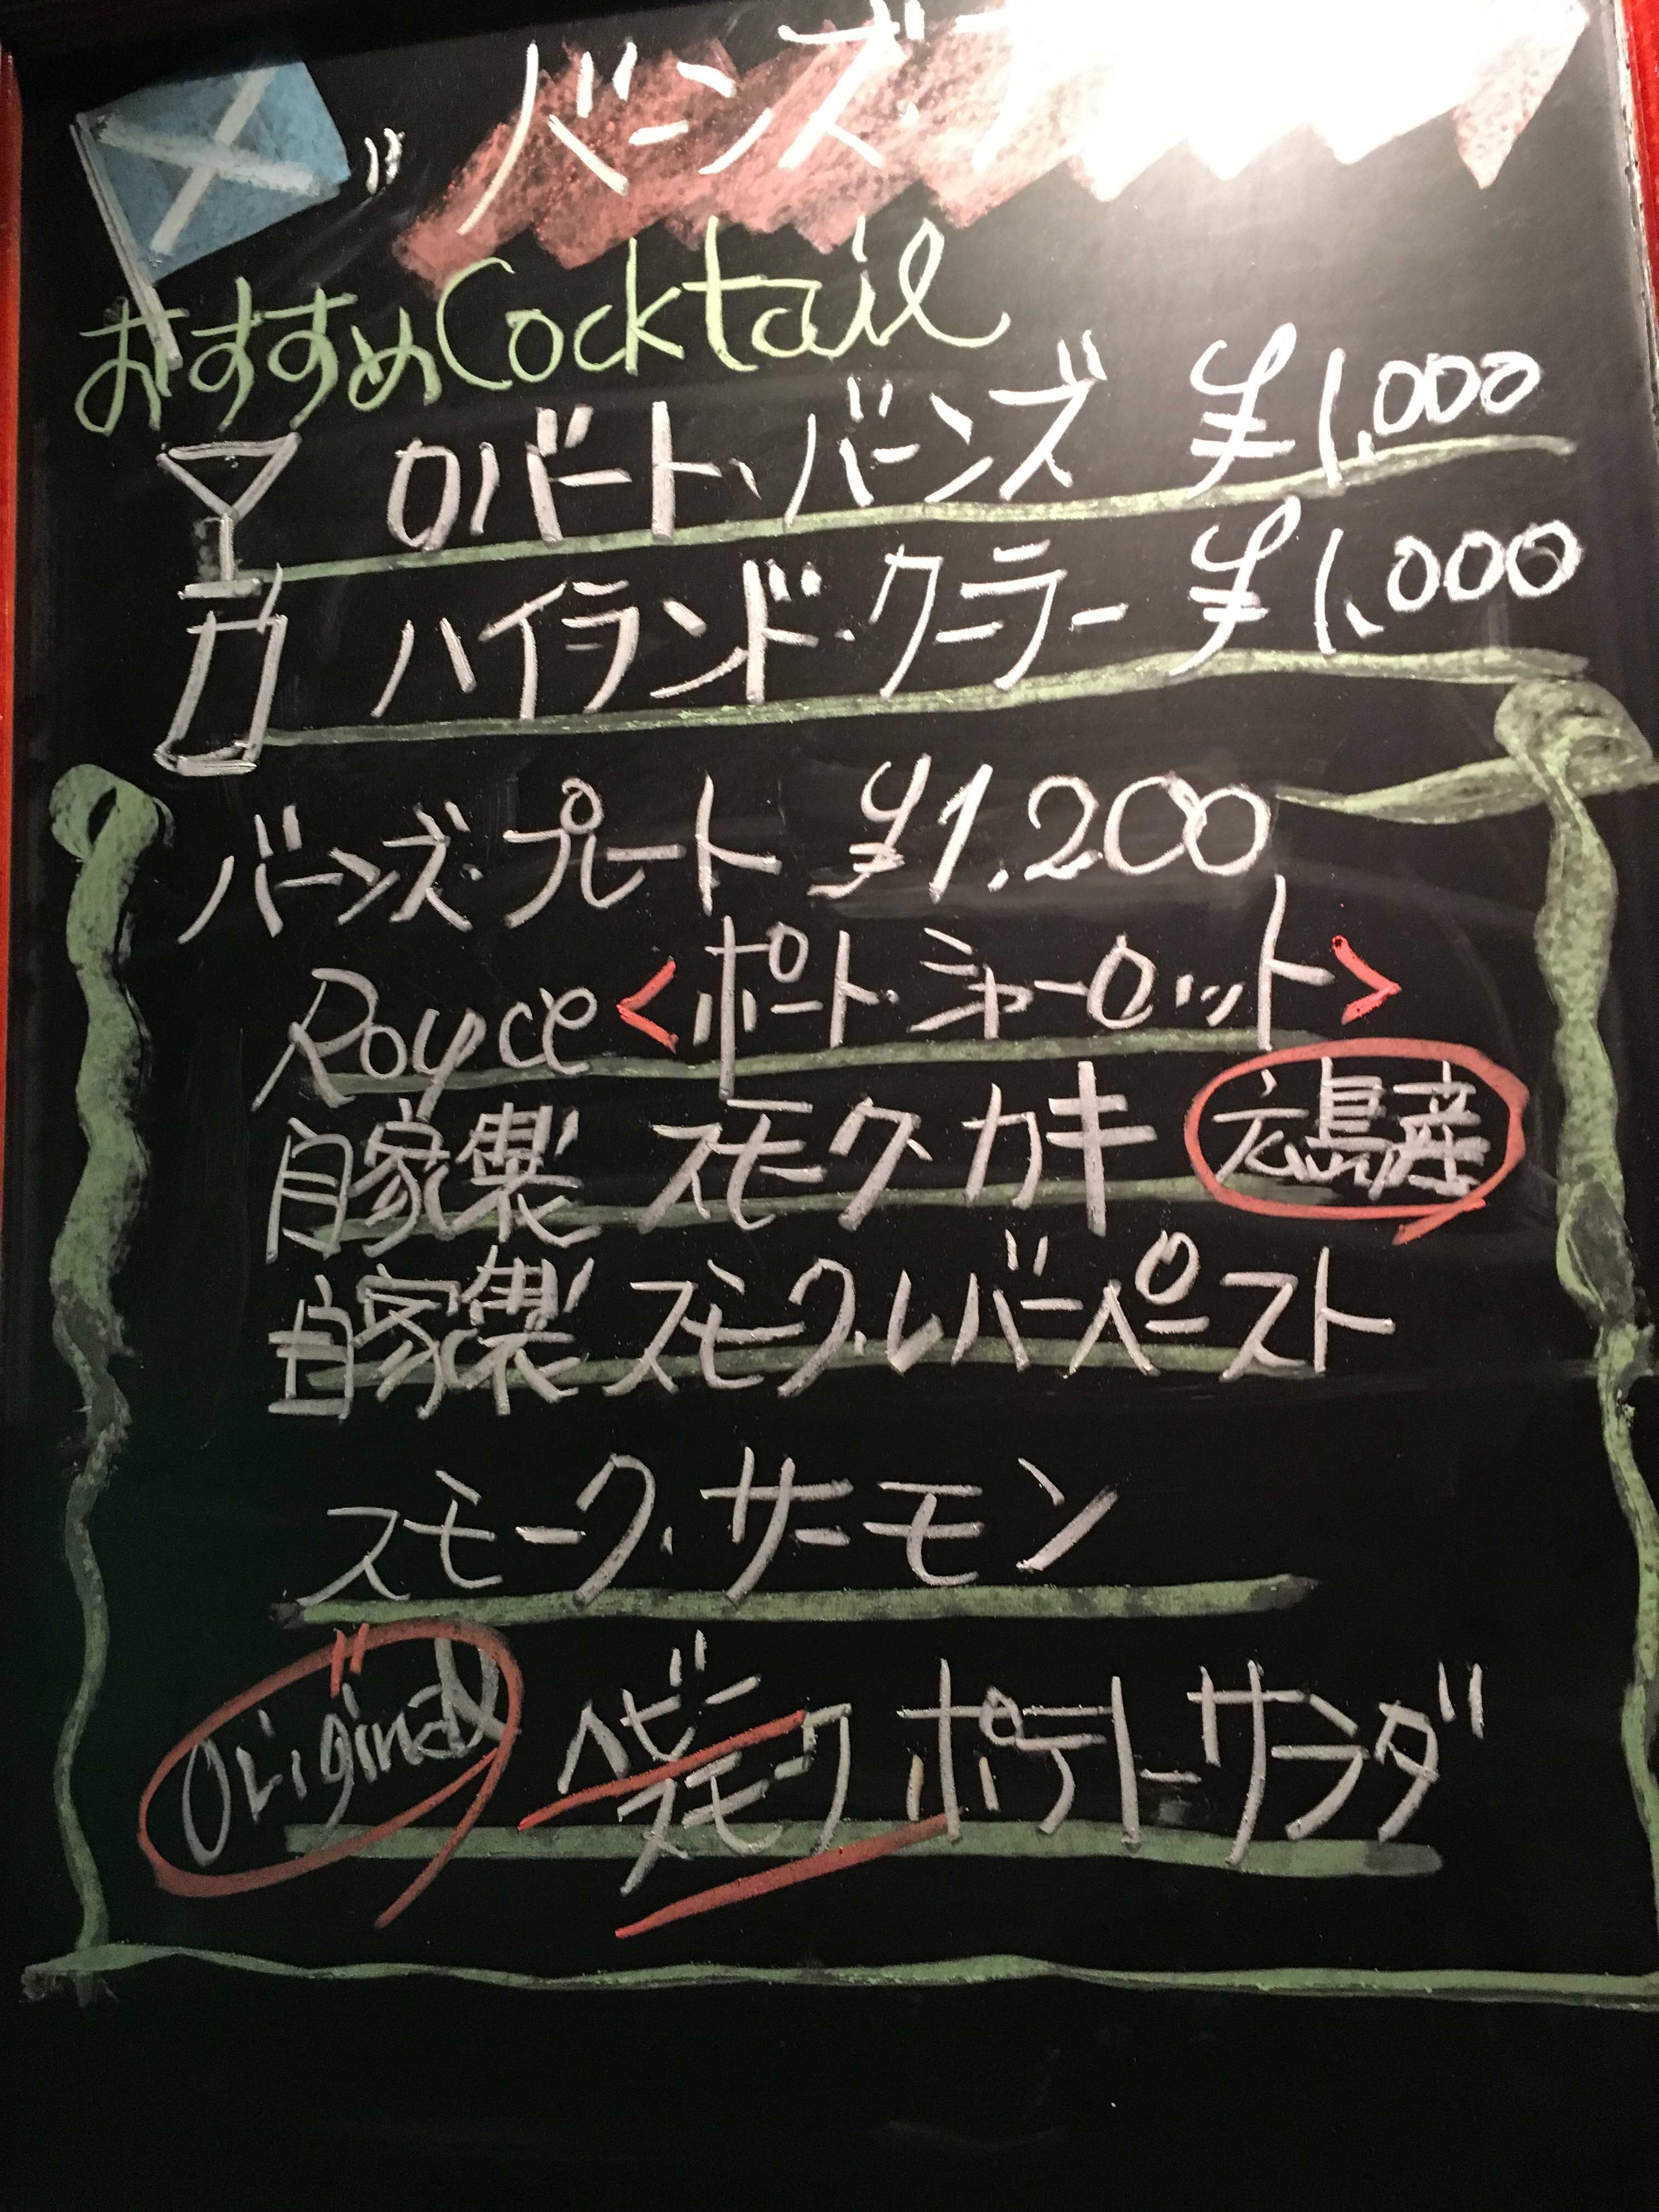 "バーンズ・
おすすめCocktail
ロバート・バーンズ ¥1,000
ハイランド・クーラー ¥1,000
バーンズ・プレート ¥1,200
Royce<ポート・シャーロット>
自家製 スモーク・カキ 広島産
自家製 スモーク・レバーペースト
スモーク・サーモン
Original ヘビースモーク ポテトサラダ